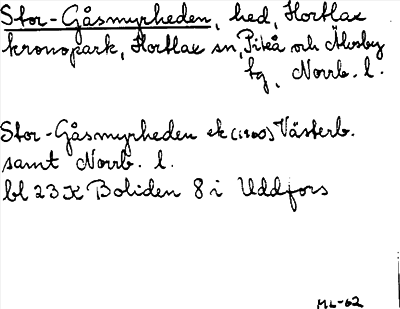 Stor-Gåsmyrheden, hed, Hortlax
kronopark, Hortlax sn, Piteå och Älvsby
tg, Norrb. l.
Stor-Gåsmyrheden ek (1:100) Västerb.
samt Norrb. l.
bl 23 K Boliden 8 i Uddfors
ML-62